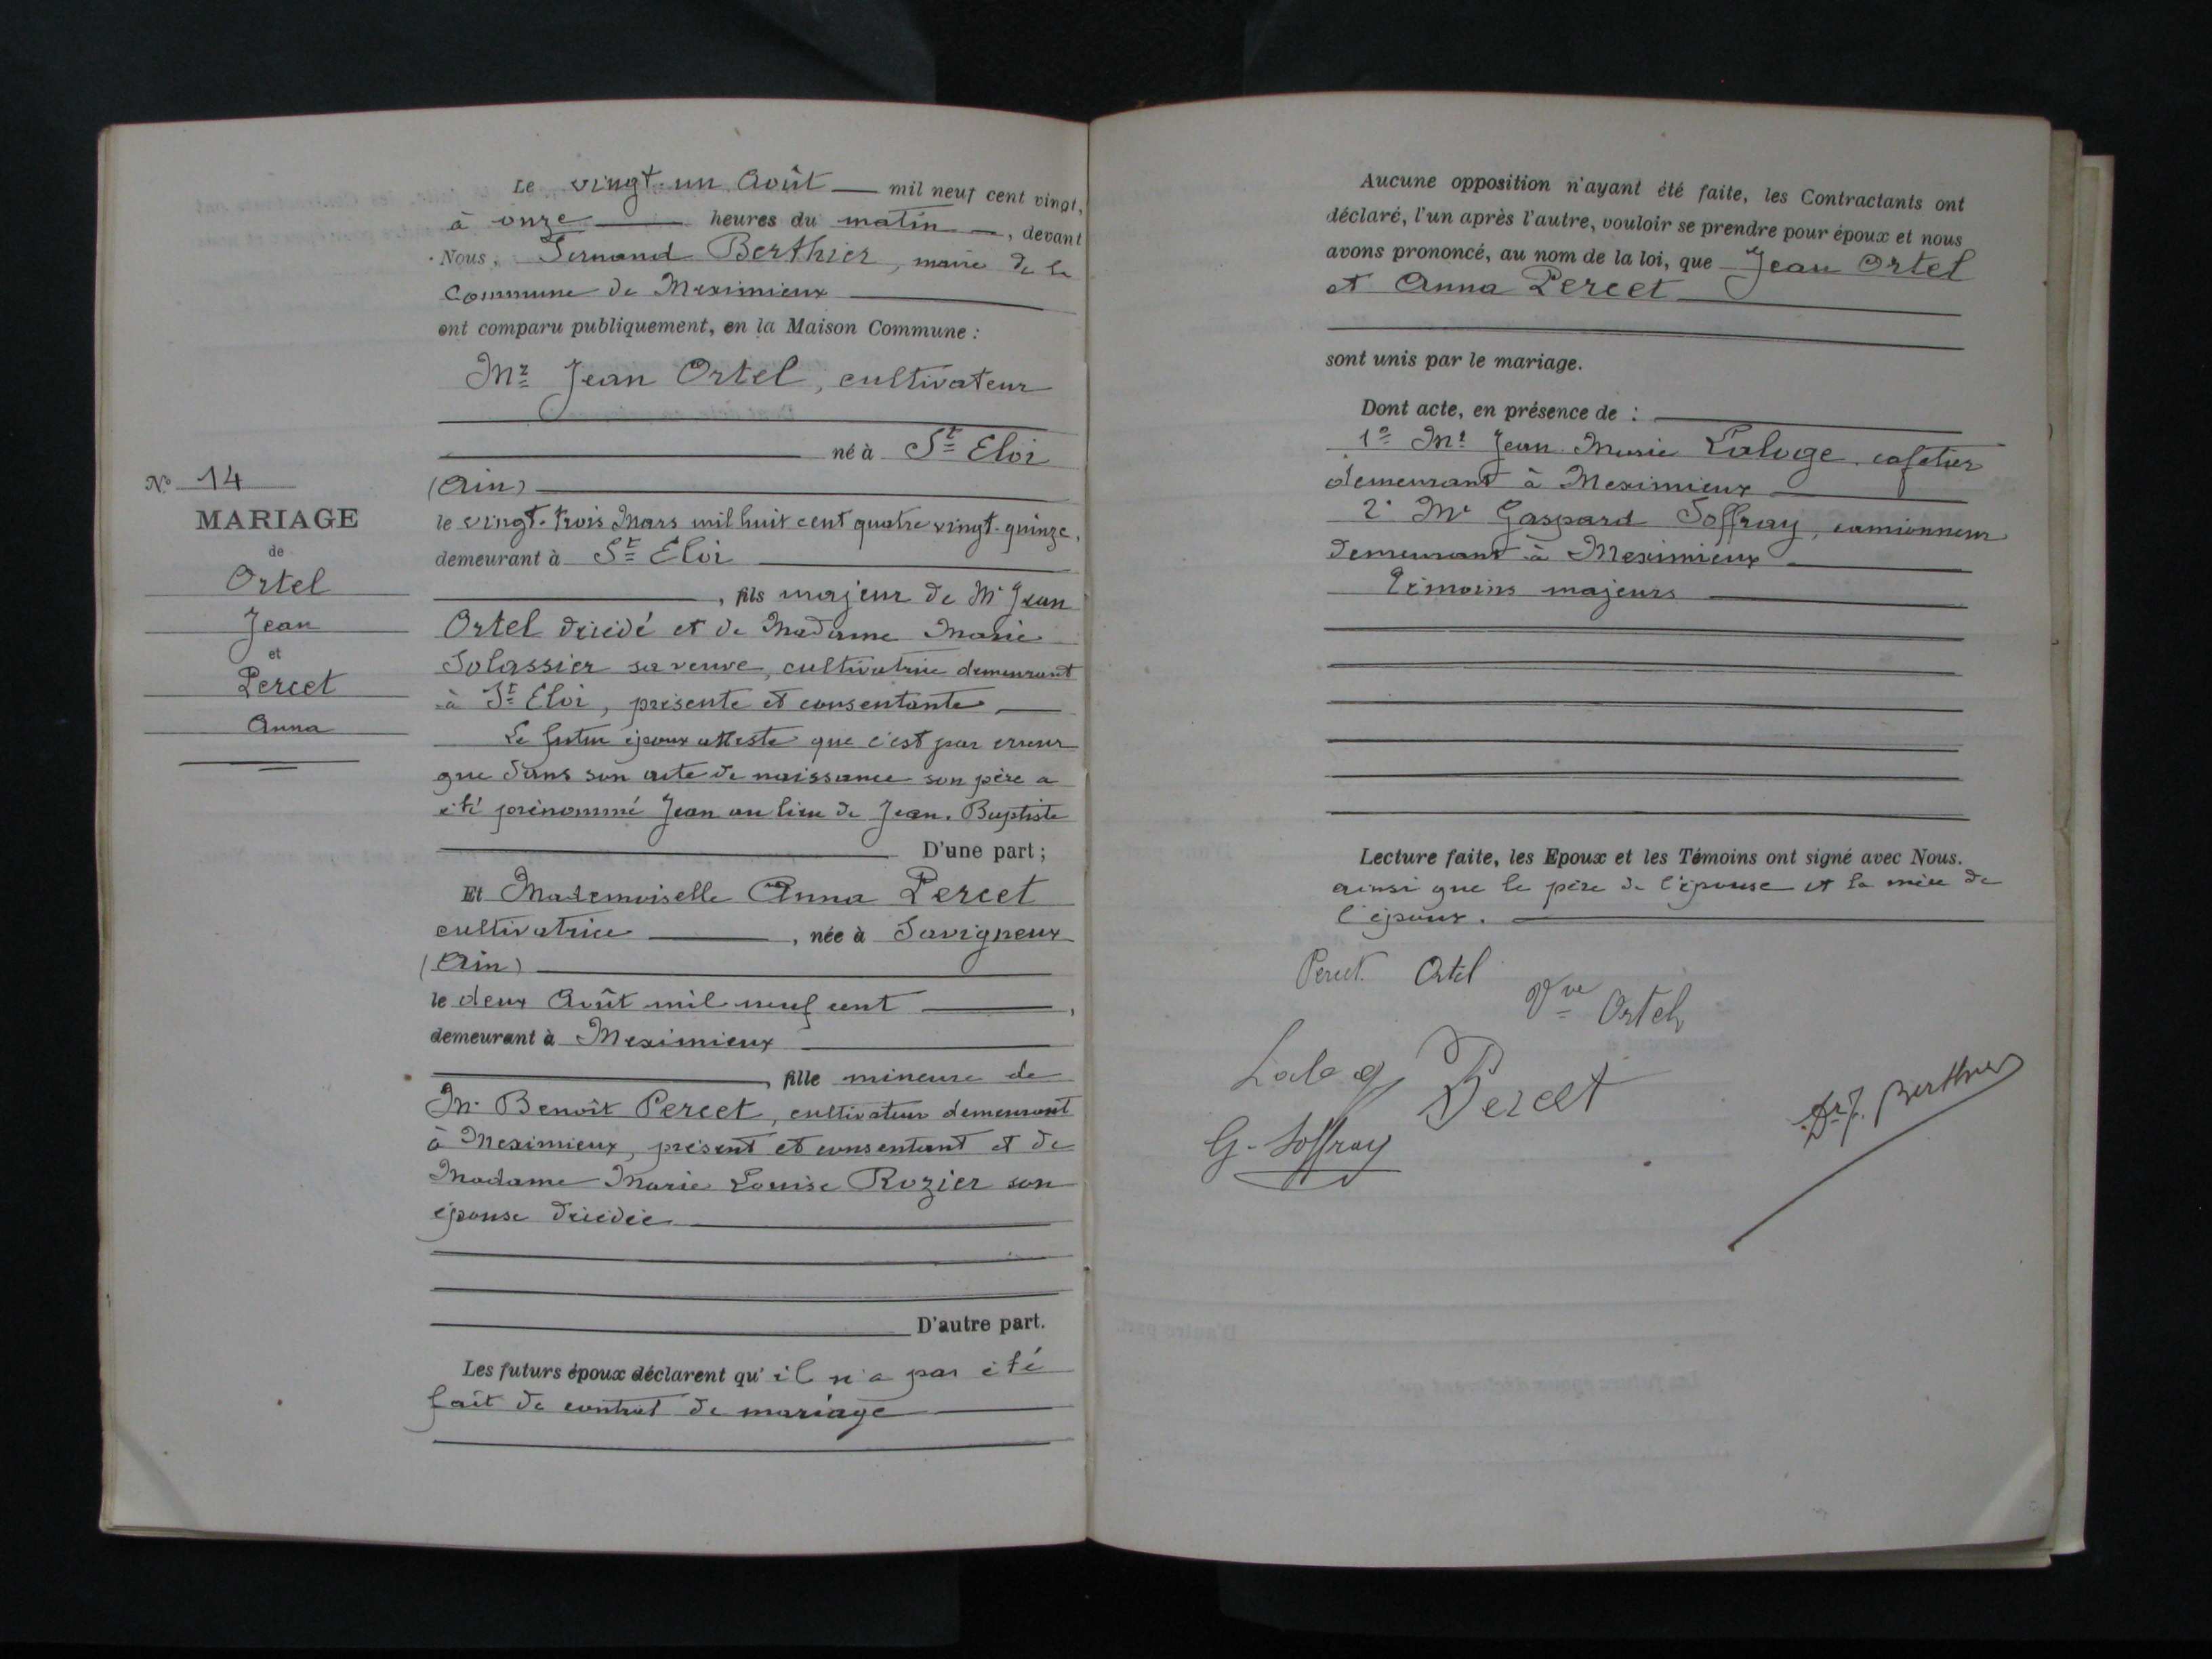 N° 14
MARIAGE
de
Ortel
Jean
et
Percet
Anna
Le vingt-un Août mil neuf cent vingt,
à onze heures du matin, devant
Nous, Fernand Berthier, maire de la
Commune de Meximieux
ont comparu publiquement, en la Maison Commune :
Mr Jean Ortel, cultivateur
né à St Eloi
(Ain)
le vingt-trois Mars mil huit cent quatre vingt-quinze,
demeurant à St Eloi
, fils majeur de Mr Jean
Ortel décédé et de Madame Marie
Solassier sa veuve, cultivatrice demeurant
à St Eloi, présente et consentante
Le futur époux atteste que c'est par erreur
que dans son acte de naissance son père a
été prénommé Jean au lieu de Jean-Baptiste
D'une part ;
Et Mademoiselle Anna Percet
cultivatrice, née à Savigneux
(Ain)
le deux Août mil neuf cent,
demeurant à Meximieux
, fille mineure de
Mr Benoît Percet, cultivateur demeurant
à Meximieux, présent et consentant et de
Madame Marie Louise Rozier son
épouse décédée
D'autre part.
Les futurs époux déclarent qu'il n'a pas été
fait de contrat de mariage
Aucune opposition n'ayant été faite, les Contractants ont
déclaré, l'un après l'autre, vouloir se prendre pour époux et nous
avons prononcé, au nom de la loi, que Jean Ortel
et Anna Percet
sont unis par le mariage.
Dont acte, en présence de :
1° Mr Jean Marie Laloge, cafetier
demeurant à Meximieux
2° Mr Gaspard Soffray, camionneur
demeurant à Meximieux
Témoins majeurs
Lecture faite, les Epoux et les Témoins ont signé avec Nous.
ainsi que le père de l'épouse et la mère de
l'époux.
Percet Ortel
Vve Ortel
Percet
G. Soffray
Dr F. Berthier